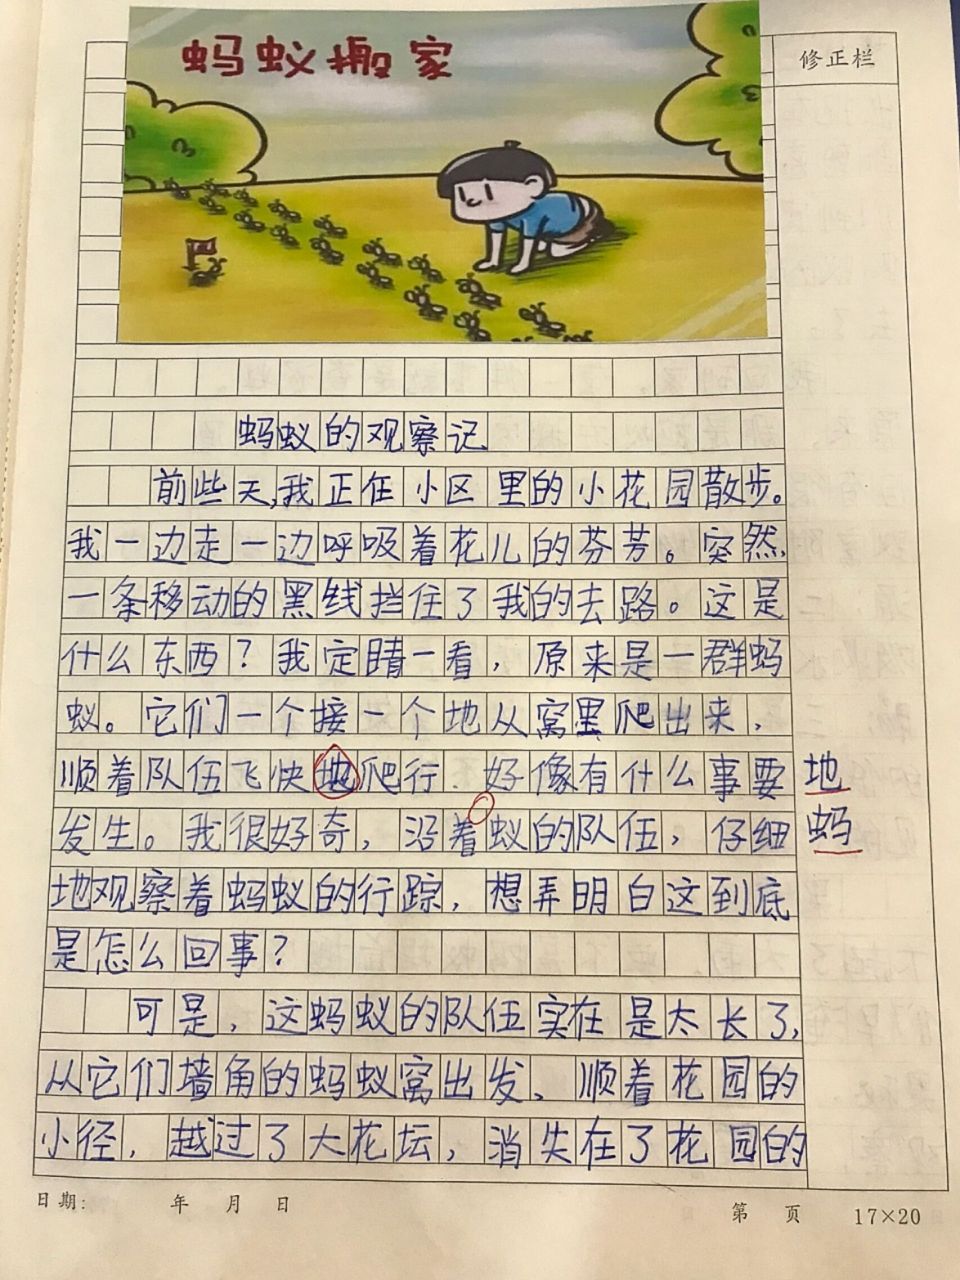 蚂蚁搬家
修正栏
蚂蚁的观察记
前些天,我正在小区里的小花园散步。
我一边走一边呼吸着花儿的芬芳。突然,
一条移动的黑线挡住了我的去路。这是
什么东西?我定睛一看,原来是一群蚂
蚁。它们一个接一个地从窝里爬出来,
顺着队伍飞快地爬行.好像有什么事要 地
发生。我很好奇,沿着蚁的队伍,仔细 蚂
地观察着蚂蚁的行踪,想弄明白这到底
是怎么回事?
可是,这蚂蚁的队伍实在是太长了,
从它们墙角的蚂蚁窝出发、顺着花园的
小径,越过了大花坛,消失在了花园的
日期: 年 月 日 第 页 17×20